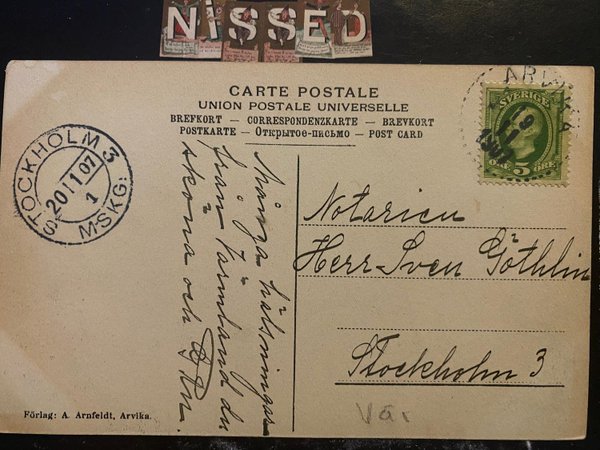 NiSSED
CARTE POSTALE
UNION POSTALE UNIVERSELLE
BREFKORT — CORRESPONDENZKARTE — BREVKORT
POSTKARTE — Открытое-письмо — POST CARD
STOCKHOLM 3
20 11 07
1
M·SKG:
ARVIKA
19
11
SVERIGE
5
ÖRE
Många hälsningar
från Värmland du
sköna och
Notarien
Herr Sven Göthlin
Stockholm 3
Vär
Förlag: A. Arnfeldt, Arvika.